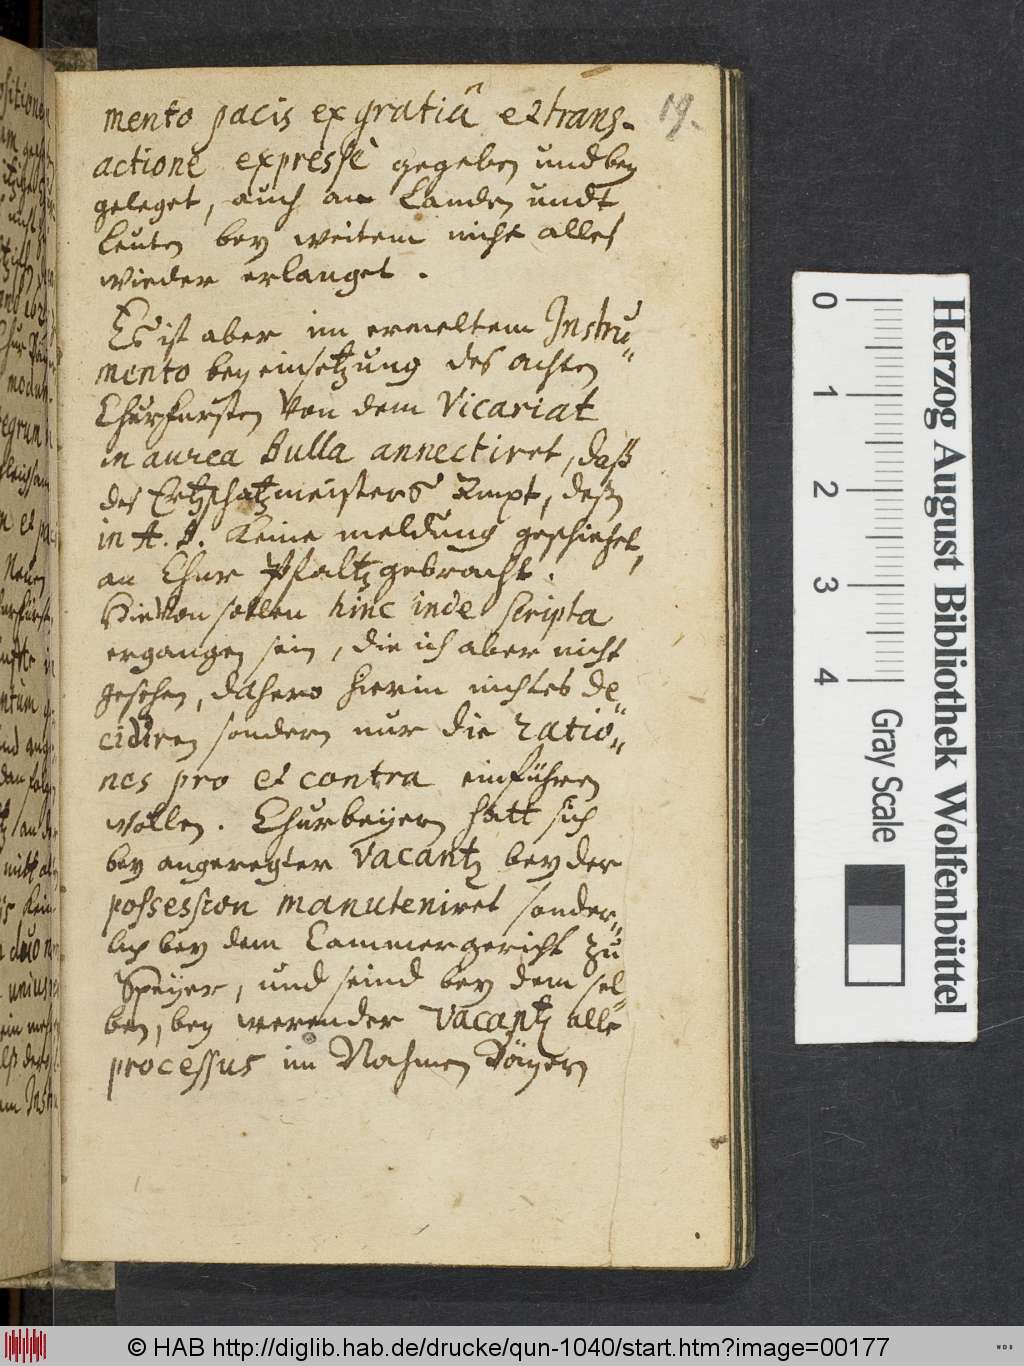 19.
mento pacis ex gratiâ et trans-
actione expresse gegeben und bey
geleget, auch an Landen undt
Leuten bey weitem nicht alles
wieder erlanget.
Es ist aber im ermeltem Instru„
mento bey einsetzung des achten
Churfursten von dem Vicariat
in aurea bulla annectiret, daß
des Ertzschatzmeisters Ampt, deßen
in A. B. keine meldung geschiehet,
an Chur Pfaltz gebracht.
Hievon sollen hinc inde scripta
ergangen sein, die ich aber nicht
gesehen, dahero hierin nichtes de„
cidiren sondern nur die ratio„
nes pro et contra einführen
wollen. Churbeyern hatt sich
bey angeregter Vacantz bey der
possession manuteniret sonder„
lich bey dem Cammergericht zu
Speyer, und seind bey dem sel„
ben, bey werender Vacantz alle
processus im Nahmen Bäyern
Herzog August Bibliothek Wolfenbüttel
0 1 2 3 4
Gray Scale
© HAB http://diglib.hab.de/drucke/qun-1040/start.htm?image=00177